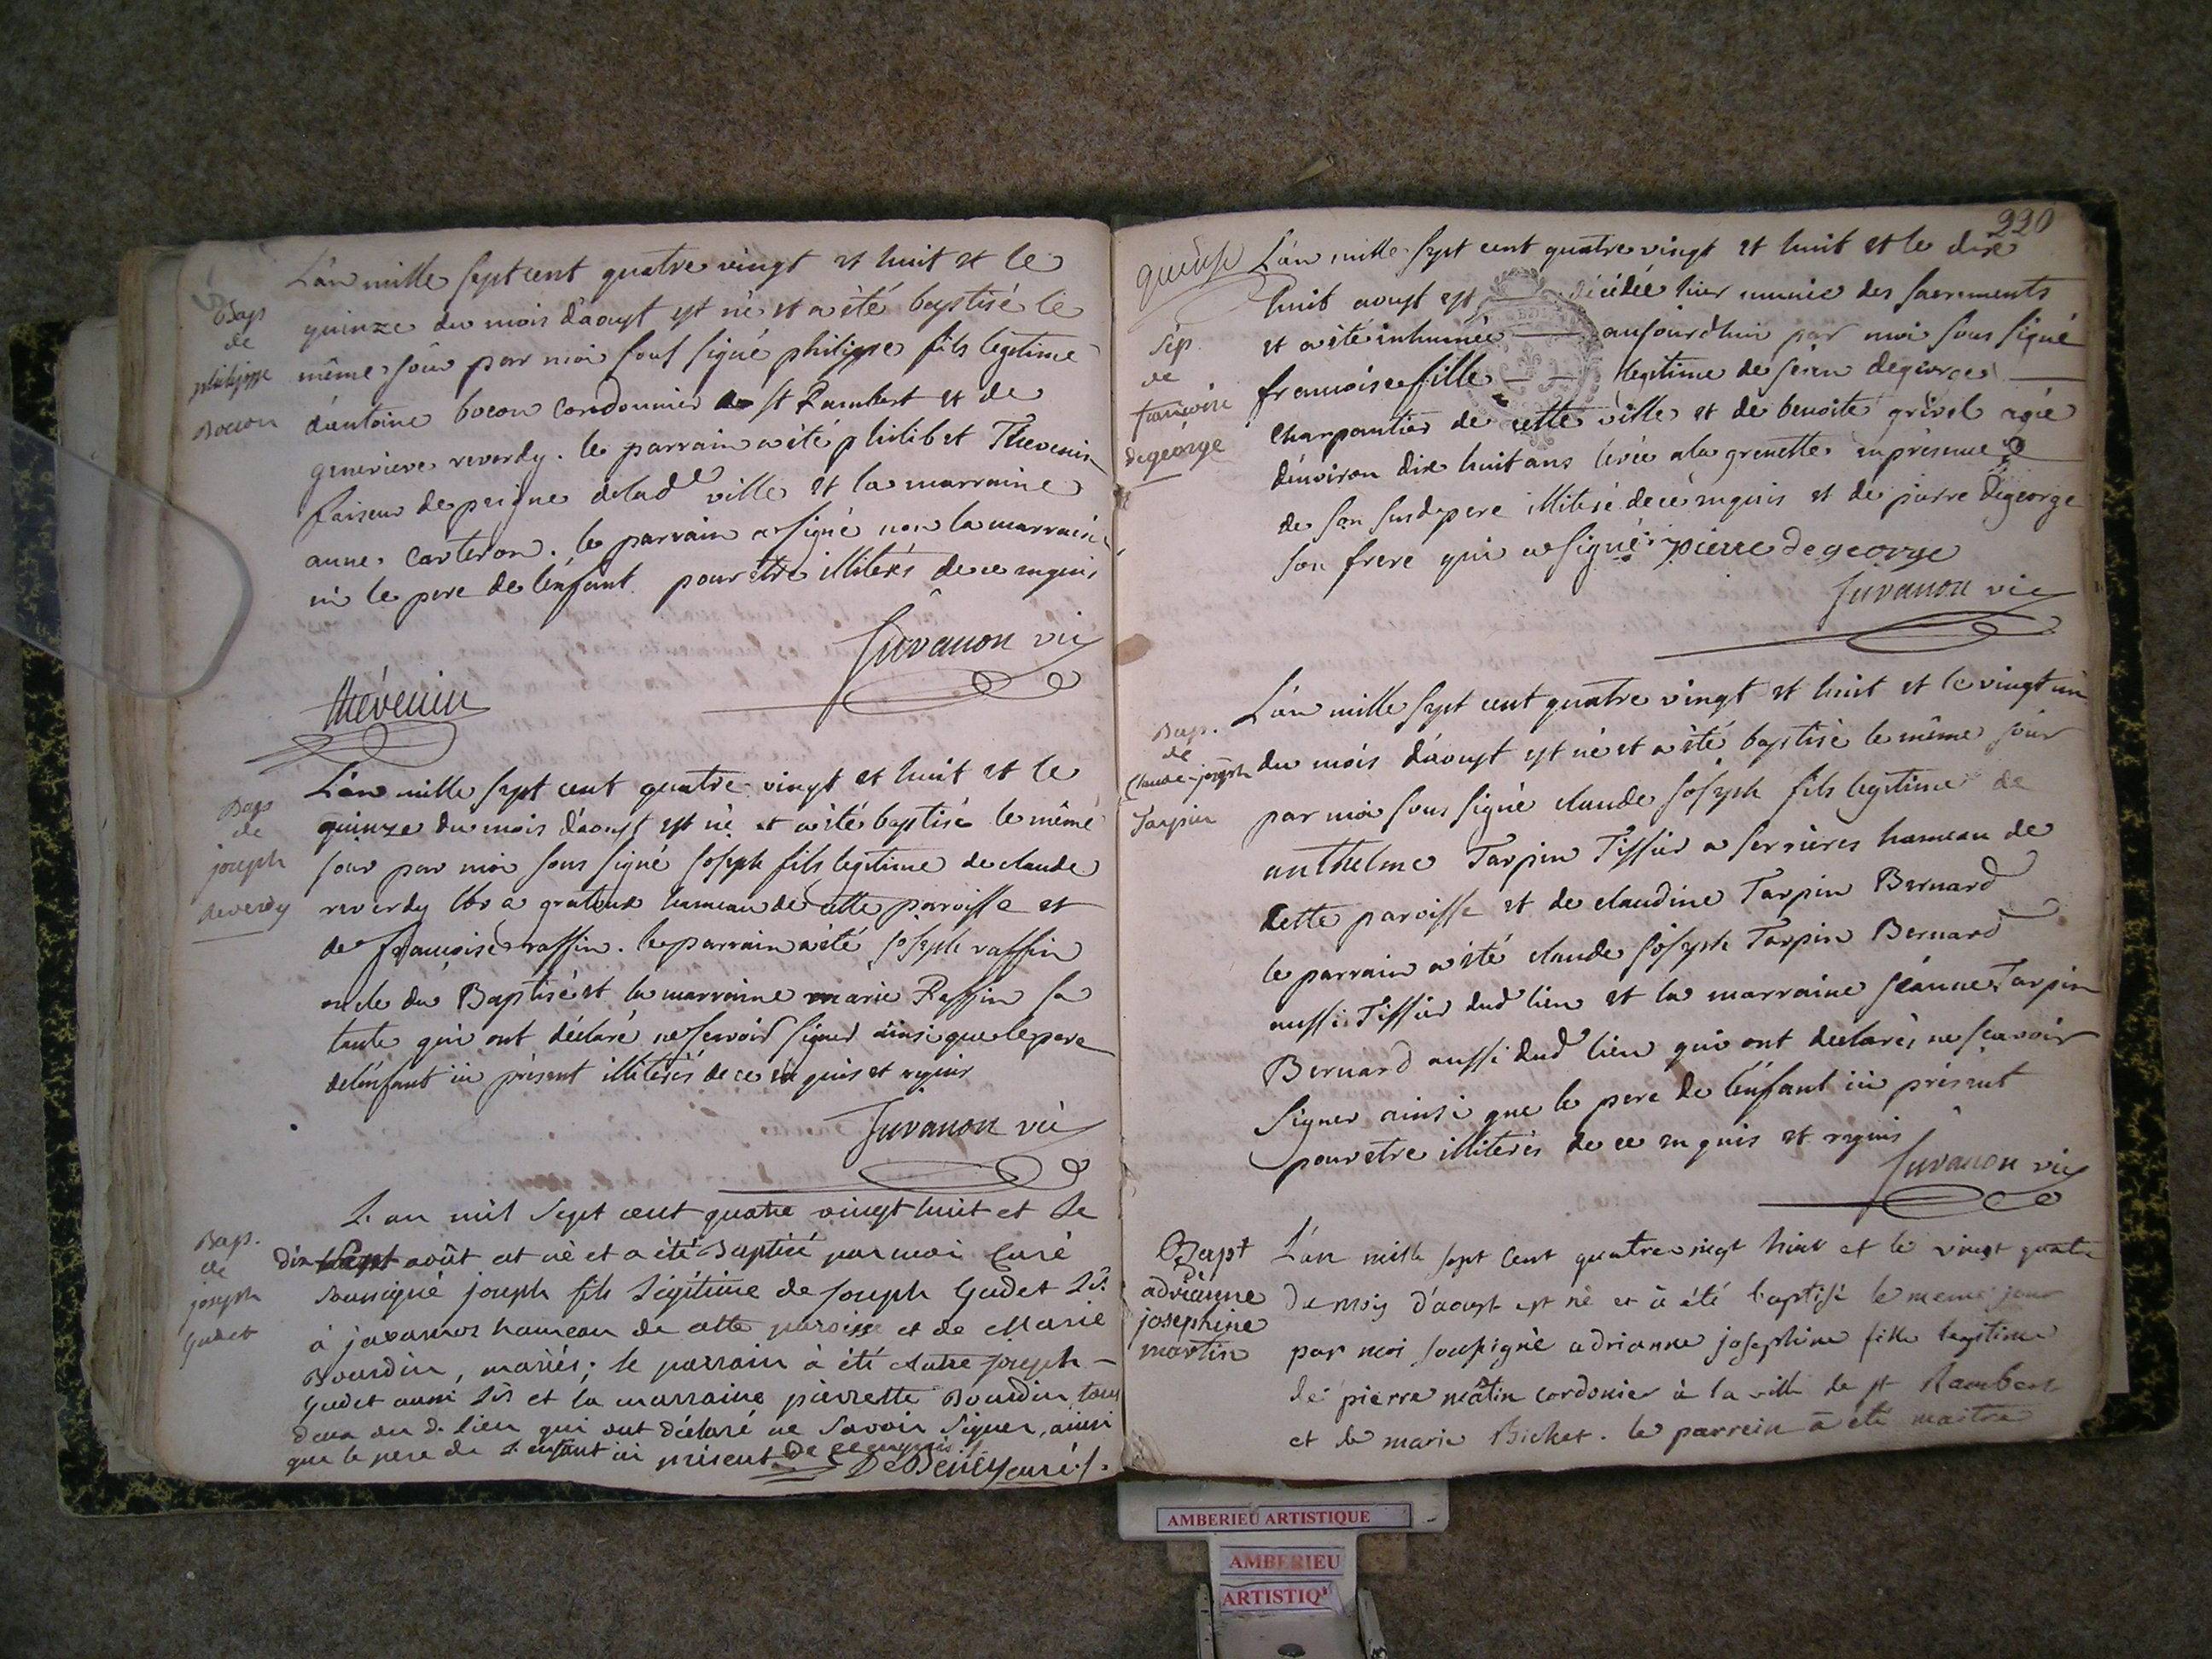 L'an mille sept cent quatre vingt et huit et le
quinze du mois d'aoust est né et a été baptisé le
même jour par moi sous signé philippe fils legitime
d'antoine bocon cordonnier de st Rambert et de
genevieve reverdy. le parrain a été philibert Thevenin
faiseur de peigne de lad ville et la marraine
anne Carteron. le parrain a signé non la marraine
ni le pere de l'enfant pour etre illiterés de ce enquis
Juvanon vic
thévenin
Bap
de
philippe
Bocon
L'an mille sept cent quatre vingt et huit et le
quinze du mois d'aoust est né et a été baptisé le même
jour par moi sous signé joseph fils legitime de claude
reverdy a grateux hameau de cette paroisse et
de françoise raffin. le parrain a été joseph raffin
oncle du Baptisé et la marraine marie Raffin sa
tante qui ont déclaré ne scavoir signer ainsi que le pere
de l'enfant ici présent illiterés de ce enquis et requis
Juvanon vic
Bap
de
joseph
Reverdy
L'an mil sept cent quatre vingt huit et le
dix sept août est né et a été Baptisé par moi Curé
soussigné joseph fils légitime de joseph Gudet
à javornos hameau de cette paroisse et de Marie
Bourdin, mariés; le parrain à été autre joseph
Gudet aussi et la marraine pierrette Bourdin, tous
deux du d. lieu qui ont déclaré ne savoir signer, ainsi
que le pere de l'enfant ici présent. De ce enquis
curé
Bap.
de
joseph
Gudet
220
L'an mille sept cent quatre vingt et huit et le dix
huit aoust est décédée hier munie des sacrements
et a été inhumée aujourdhui par moi sous signé
francoise fille legitime de jean degeorge
charpentier de cette ville et de benoite grivel agée
d'environ dix huit ans a la grenette en présence
de son susd pere illiteré de ce enquis et de pierre Degeorge
son frere qui a signé. pierre degeorge
Juvanon vic
Sép.
de
francoise
degeorge
L'an mille sept cent quatre vingt et huit et le vingt un
du mois d'aoust est né et a été baptisé le même jour
par moi sous signé claude joseph fils legitime de
anthelme Tarpin Tissier a serrières hameau de
cette paroisse et de claudine Tarpin Bernard
le parrain a été claude joseph Tarpin Bernard
aussi Tissier dud lieu et la marraine jeanne Tarpin
Bernard aussi dud lieu qui ont declarés ne scavoir
signer ainsi que le pere de l'enfant ici présent
pour etre illiterés de ce enquis et requis
Juvanon vic
Bap.
de
Claude-joseph
Tarpin
L'an mille sept cent quatre vingt huit et le vingt quatre
du mois d'aoust est né et à été baptisé le meme jour
par moi soussigné adrianne josephine fille legitime
de pierre mâtin cordonier à la ville de st Rambert
et de marie Bichet. le parrein à été maitre
Bapt
adrianne
josephine
martin
AMBERIEU ARTISTIQUE
AMBERIEU
ARTISTIQ